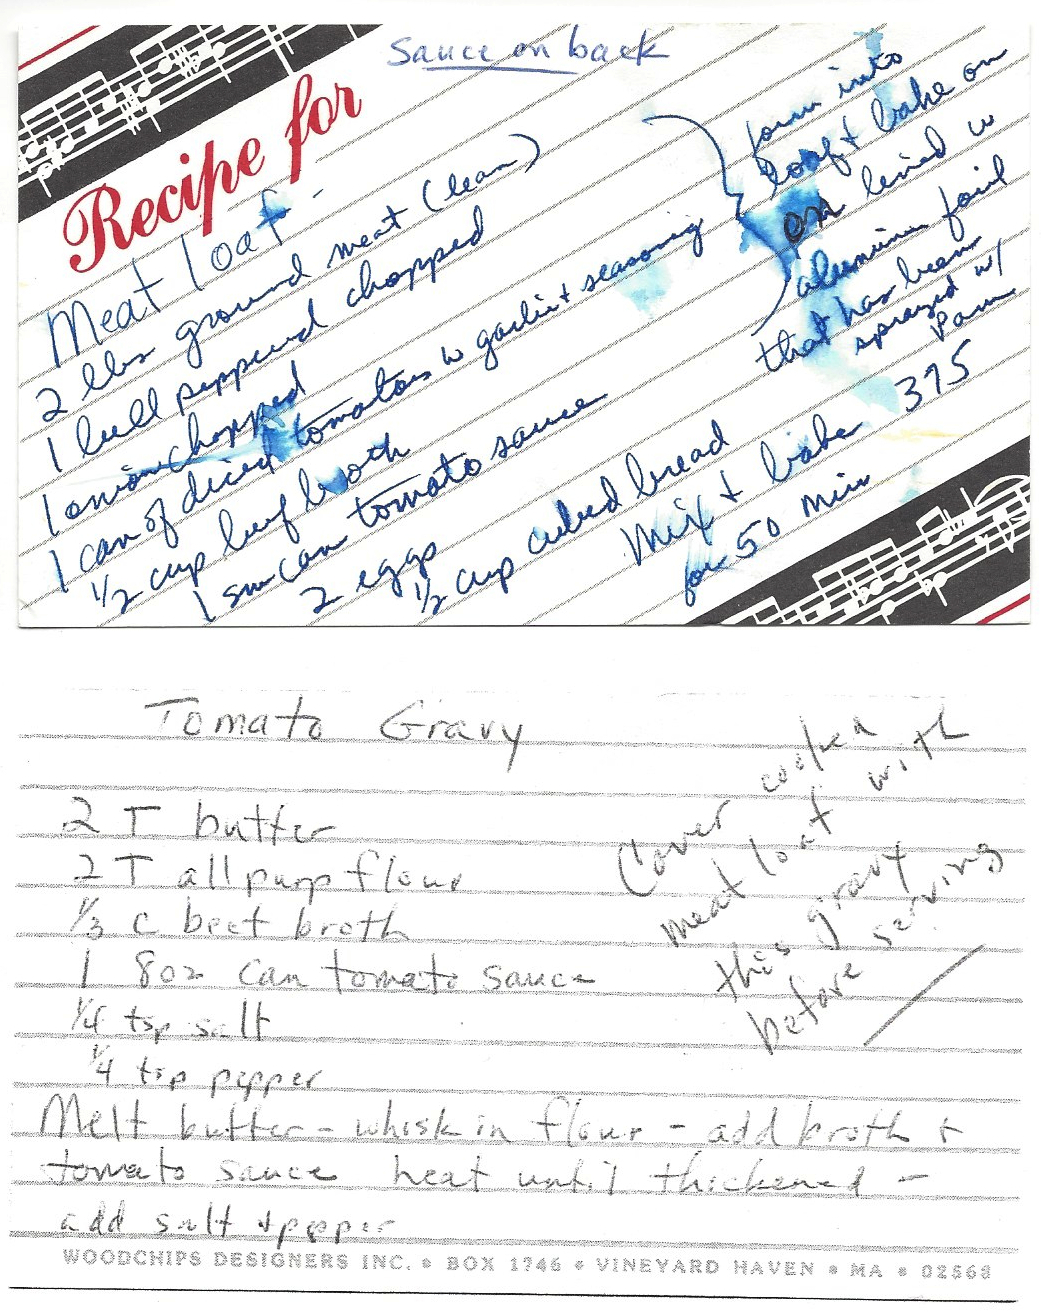 Sauce on back
Recipe for
Meat loaf -
2 lbs ground meat (lean)
1 bell pepperd chopped
1 onion chopped
1 can of diced tomatoes w garlic & seasonig
1/2 cup beef broth
1 sm can tomato sauce
2 eggs
1/2 cup cubed bread
Mix & bake 375
for 50 min
form into
loaf & bake on
on lined w
aluminum foil
that has been
sprayed w/
Pam
Tomato Gravy
2 T butter
2 T all purp flour
1/3 c beef broth
1 8oz can tomato sauce
1/4 tsp salt
1/4 tsp pepper
Cover cooked
meat loaf with
this gravy
before serving
Melt butter - whisk in flour - add broth &
tomato sauce heat until thickened -
add salt & pepper
WOODCHIPS DESIGNERS INC. • BOX 1746 • VINEYARD HAVEN • MA • 02568